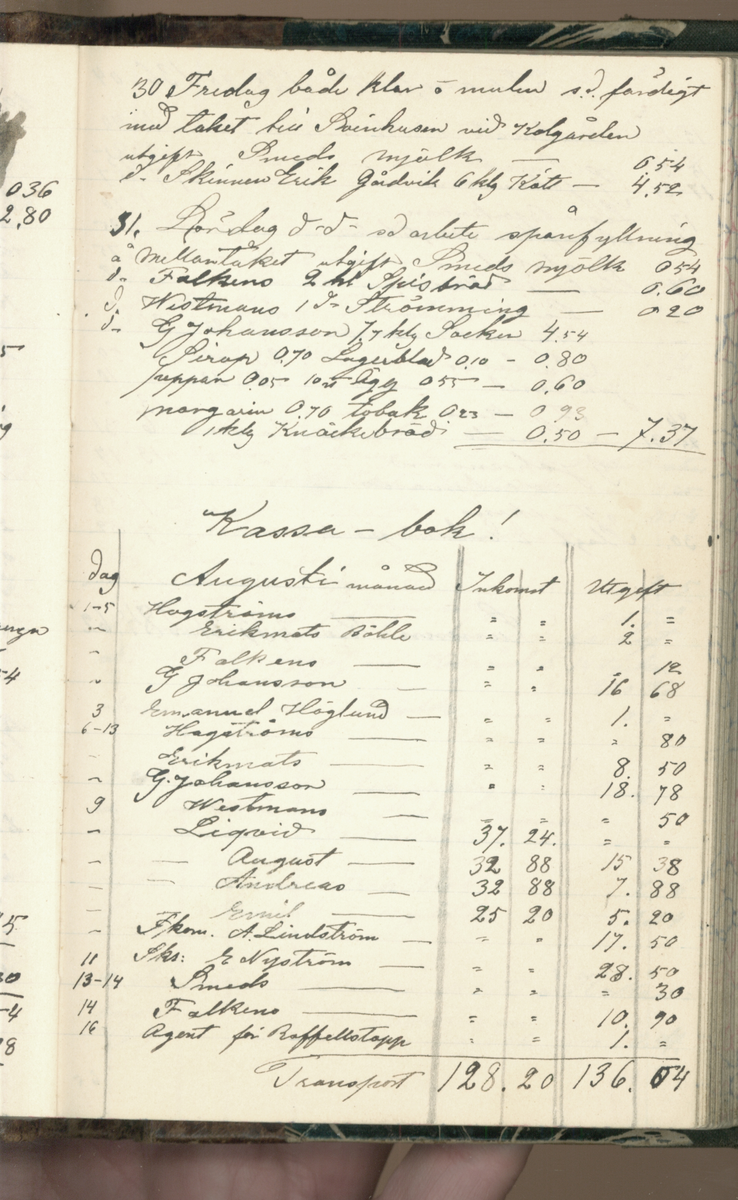 036
2.80
30 Fredag både klar o mulen sd. färdigt
med taket till Svinhusen vid Kolgården
utgift Smeds mjölk — 0.54
d- Skinnen Erik Gådvik 6 klg Kött — 4.52
31. Lördag d-d- sd arbete spånfyllning
å mellantaket utgift Smeds mjölk 0.54
d- Falkens 2 kl Spisbröd — 0.60
d. Westmans 1 d- Strömming — 0.20
d- G Johansson 7,7 klg Socker 4.54
Sirap 0.70 Lagerblad 0.10 - 0.80
0.05 10 st Ägg 0.55 — 0.60
margarin 0.70 tobak 0.23 — 0.93
1 klg Knäckebröd — 0.50 — 7.37
Kassa - bok!
dag Augusti månad Inkomst Utgift
1-5 Hagströms — " " 1. =
" Erikmats Böhle " " 2 =
" Falkens — " " " 12
" G Johansson — " " 16 68
3 Emanuel Höglund — " " 1. "
6-13 Hagströms — " " " 80
Erikmats — " " 8. 50
" G. Johansson — " " 18. 78
9 Westmans — " " " 50
" Liqvid — 37. 24. " "
" — August — 32 88 15 38
" — Andreas — 32 88 7. 88
" Emil — 25 20 5. 20
" Fkom. A. Lindström — " " 17. 50
11 Sks: E Nyström — " " 28. 50
13-14 Smeds — " " = 30
14 Falkens — " " 10. 90
16 Agent för Roffellstapp " " 1. =
Transport 128. 20 136. 04